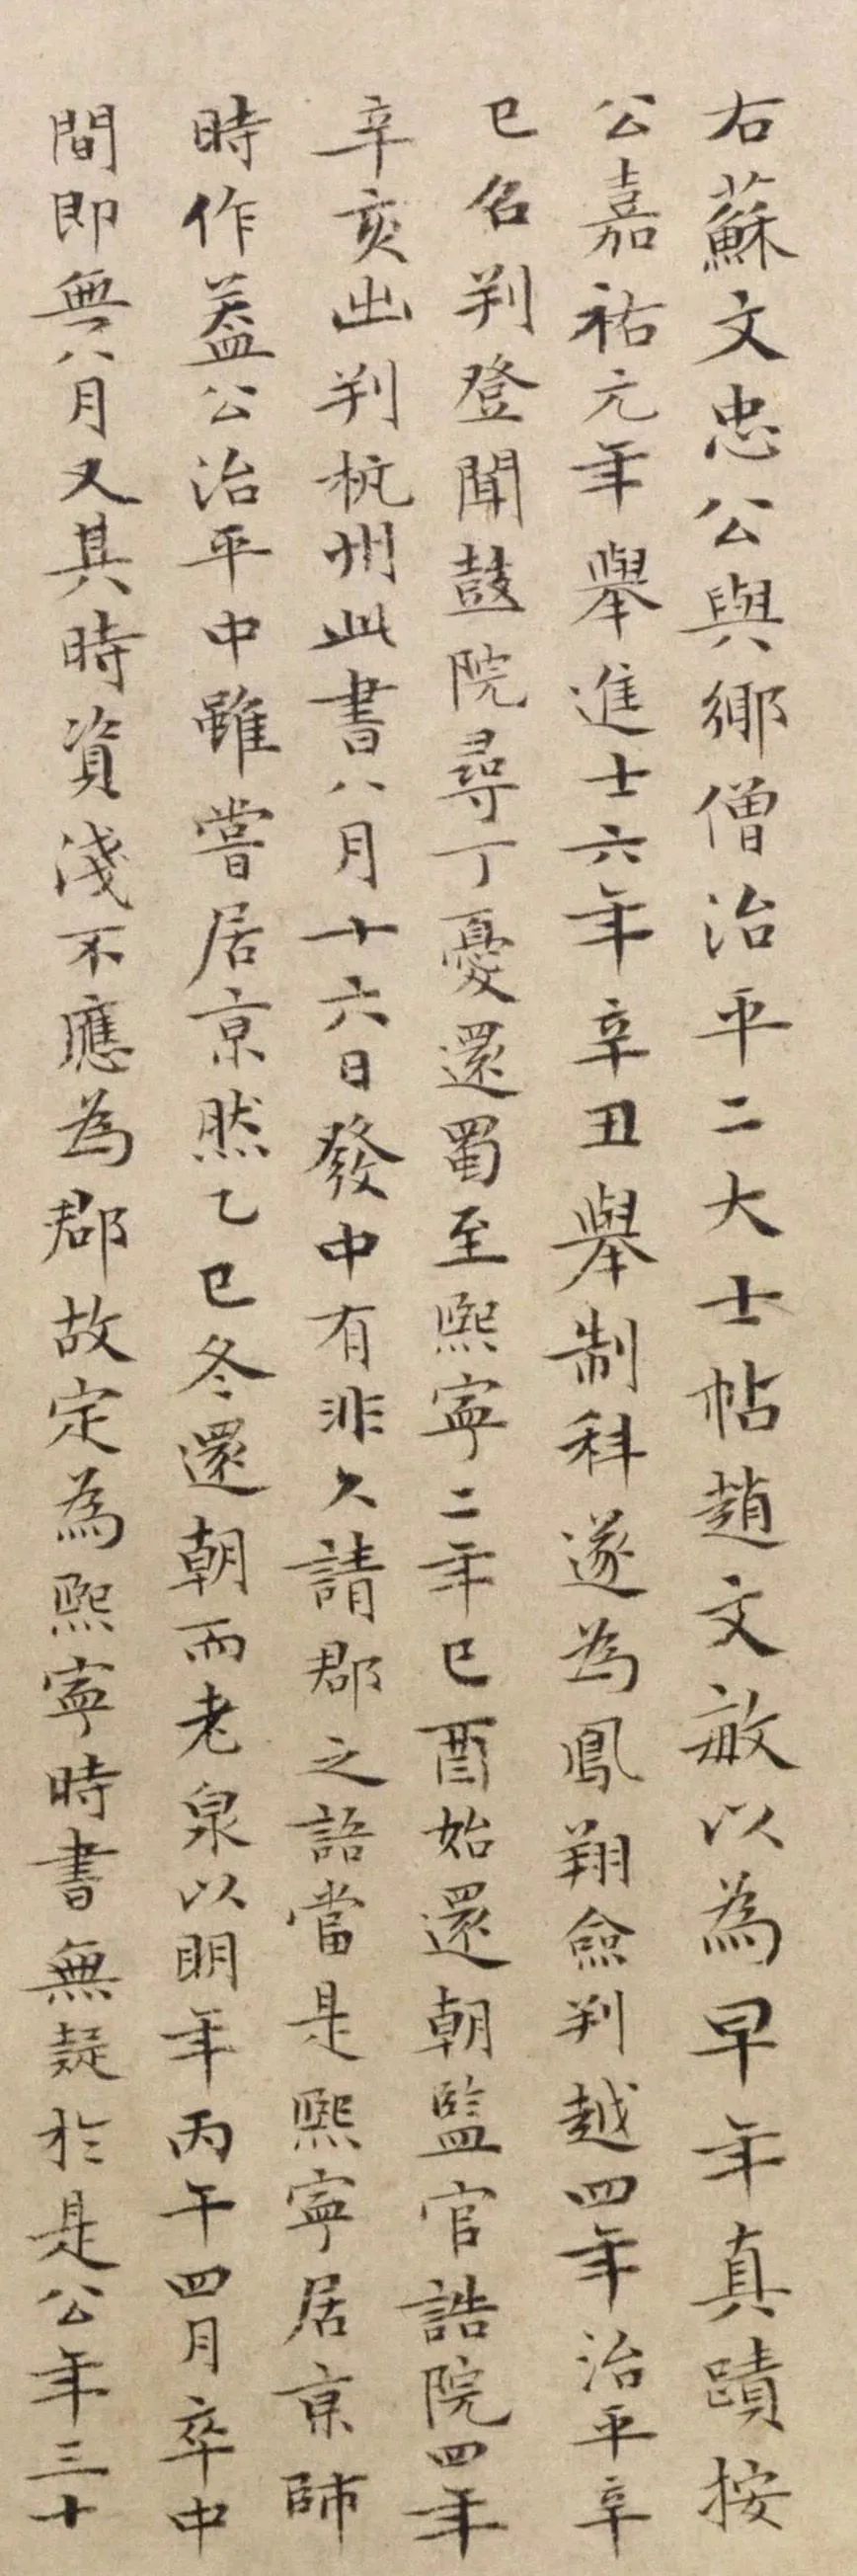 右蘇文忠公與鄉僧治平二大士帖趙文敏以為早年真蹟按
公嘉祐元年舉進士六年辛丑舉制科遂為鳳翔僉判越四年治平辛
巳名判登聞鼓院尋丁憂還蜀至熙寧二年巳酉始還朝監官誥院四年
辛亥出判杭州此書八月十六日發中有非久請郡之語當是熙寧居京師
時作蓋公治平中雖嘗居京然乙巳冬還朝而老泉以明年丙午四月卒中
間即無八月又其時資淺不應為郡故定為熙寧時書無疑於是公年三十